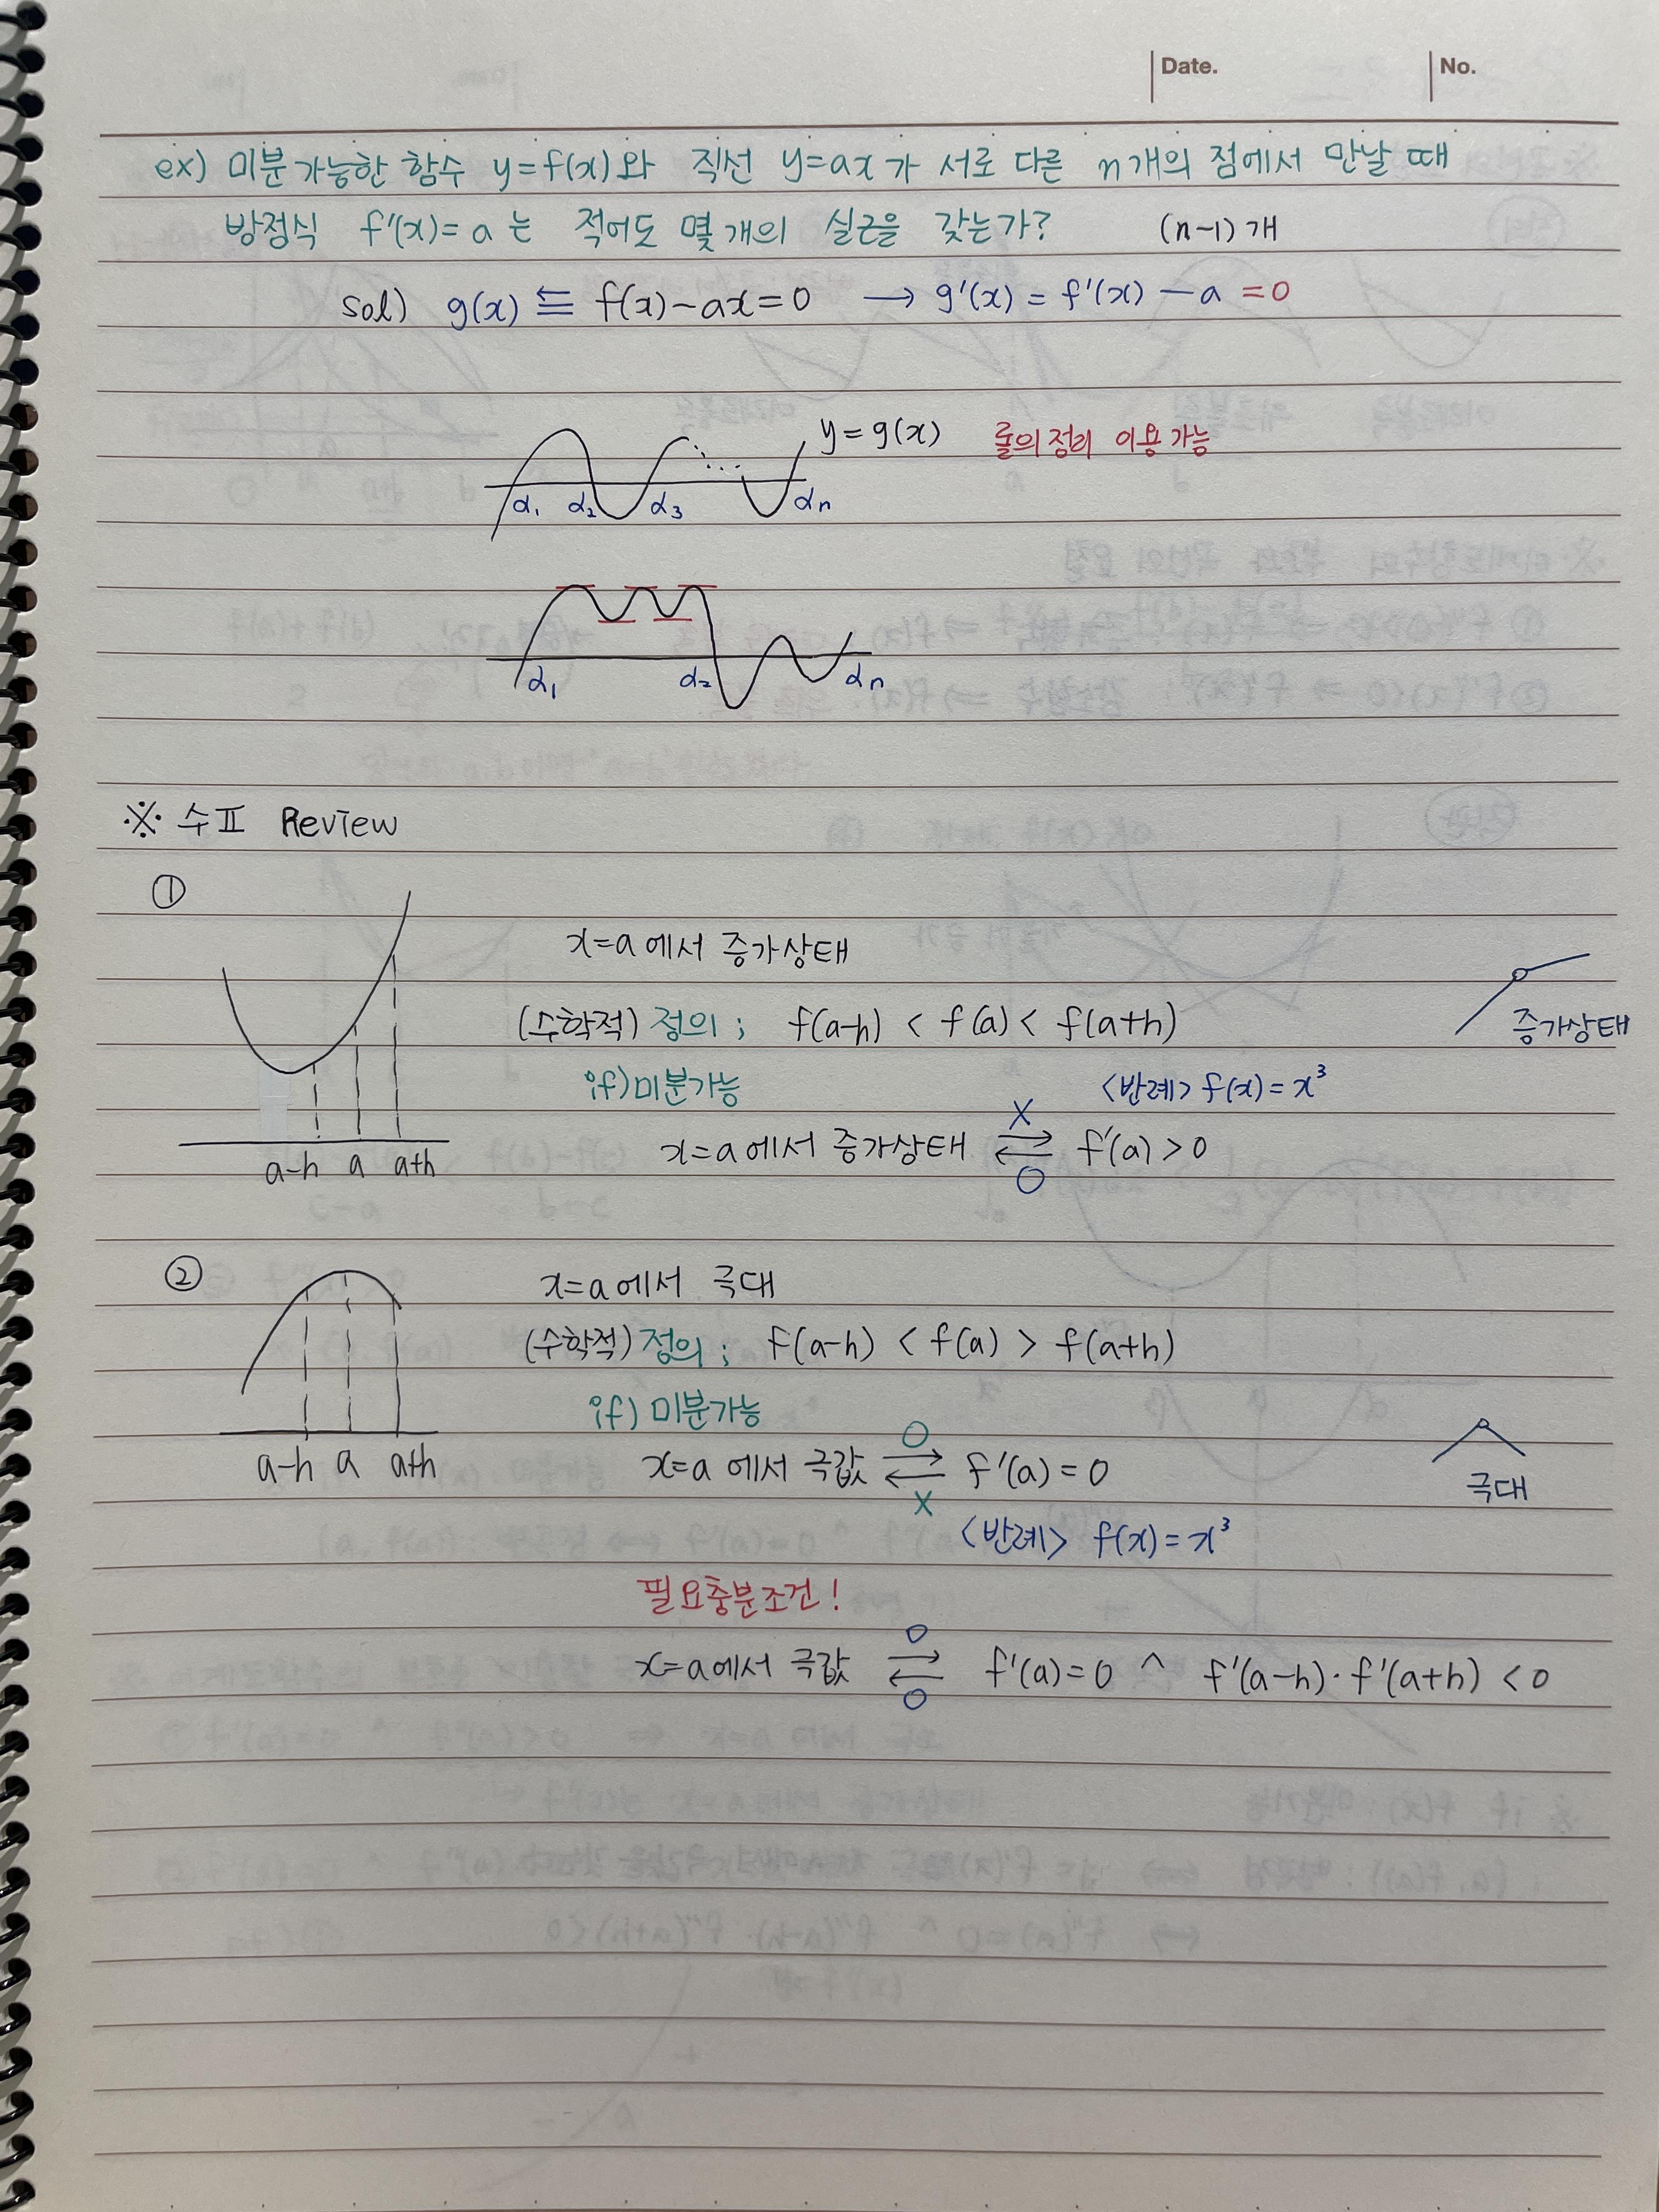 Date. No.
ex) 미분가능한 함수 y=f(x)와 직선 y=ax가 서로 다른 n개의 점에서 만날 때
방정식 f'(x)=a 는 적어도 몇 개의 실근을 갖는가? (n-1)개
sol) g(x) ≦ f(x)-ax=0 → g'(x) = f'(x) -a =0
y=g(x) 롤의 정리 이용 가능
α₁ α₂ α₃ αₙ
α₁ α₂ αₙ
※ 수Ⅱ Review
①
x=a에서 증가상태
(수학적) 정의 ; f(a-h) < f(a) < f(a+h)
증가상태
if) 미분가능 <반례> f(x)=x³
X
x=a에서 증가상태 ⇄ f'(a) >0
O
a-h a a+h
②
x=a에서 극대
(수학적) 정의 ; f(a-h) < f(a) > f(a+h)
if) 미분가능
O
x=a 에서 극값 ⇄ f'(a) = 0
X
a-h a a+h
극대
<반례> f(x)=x³
필요충분조건!
O
x=a에서 극값 ⇄ f'(a)=0 ^ f'(a-h)·f'(a+h) <0
O